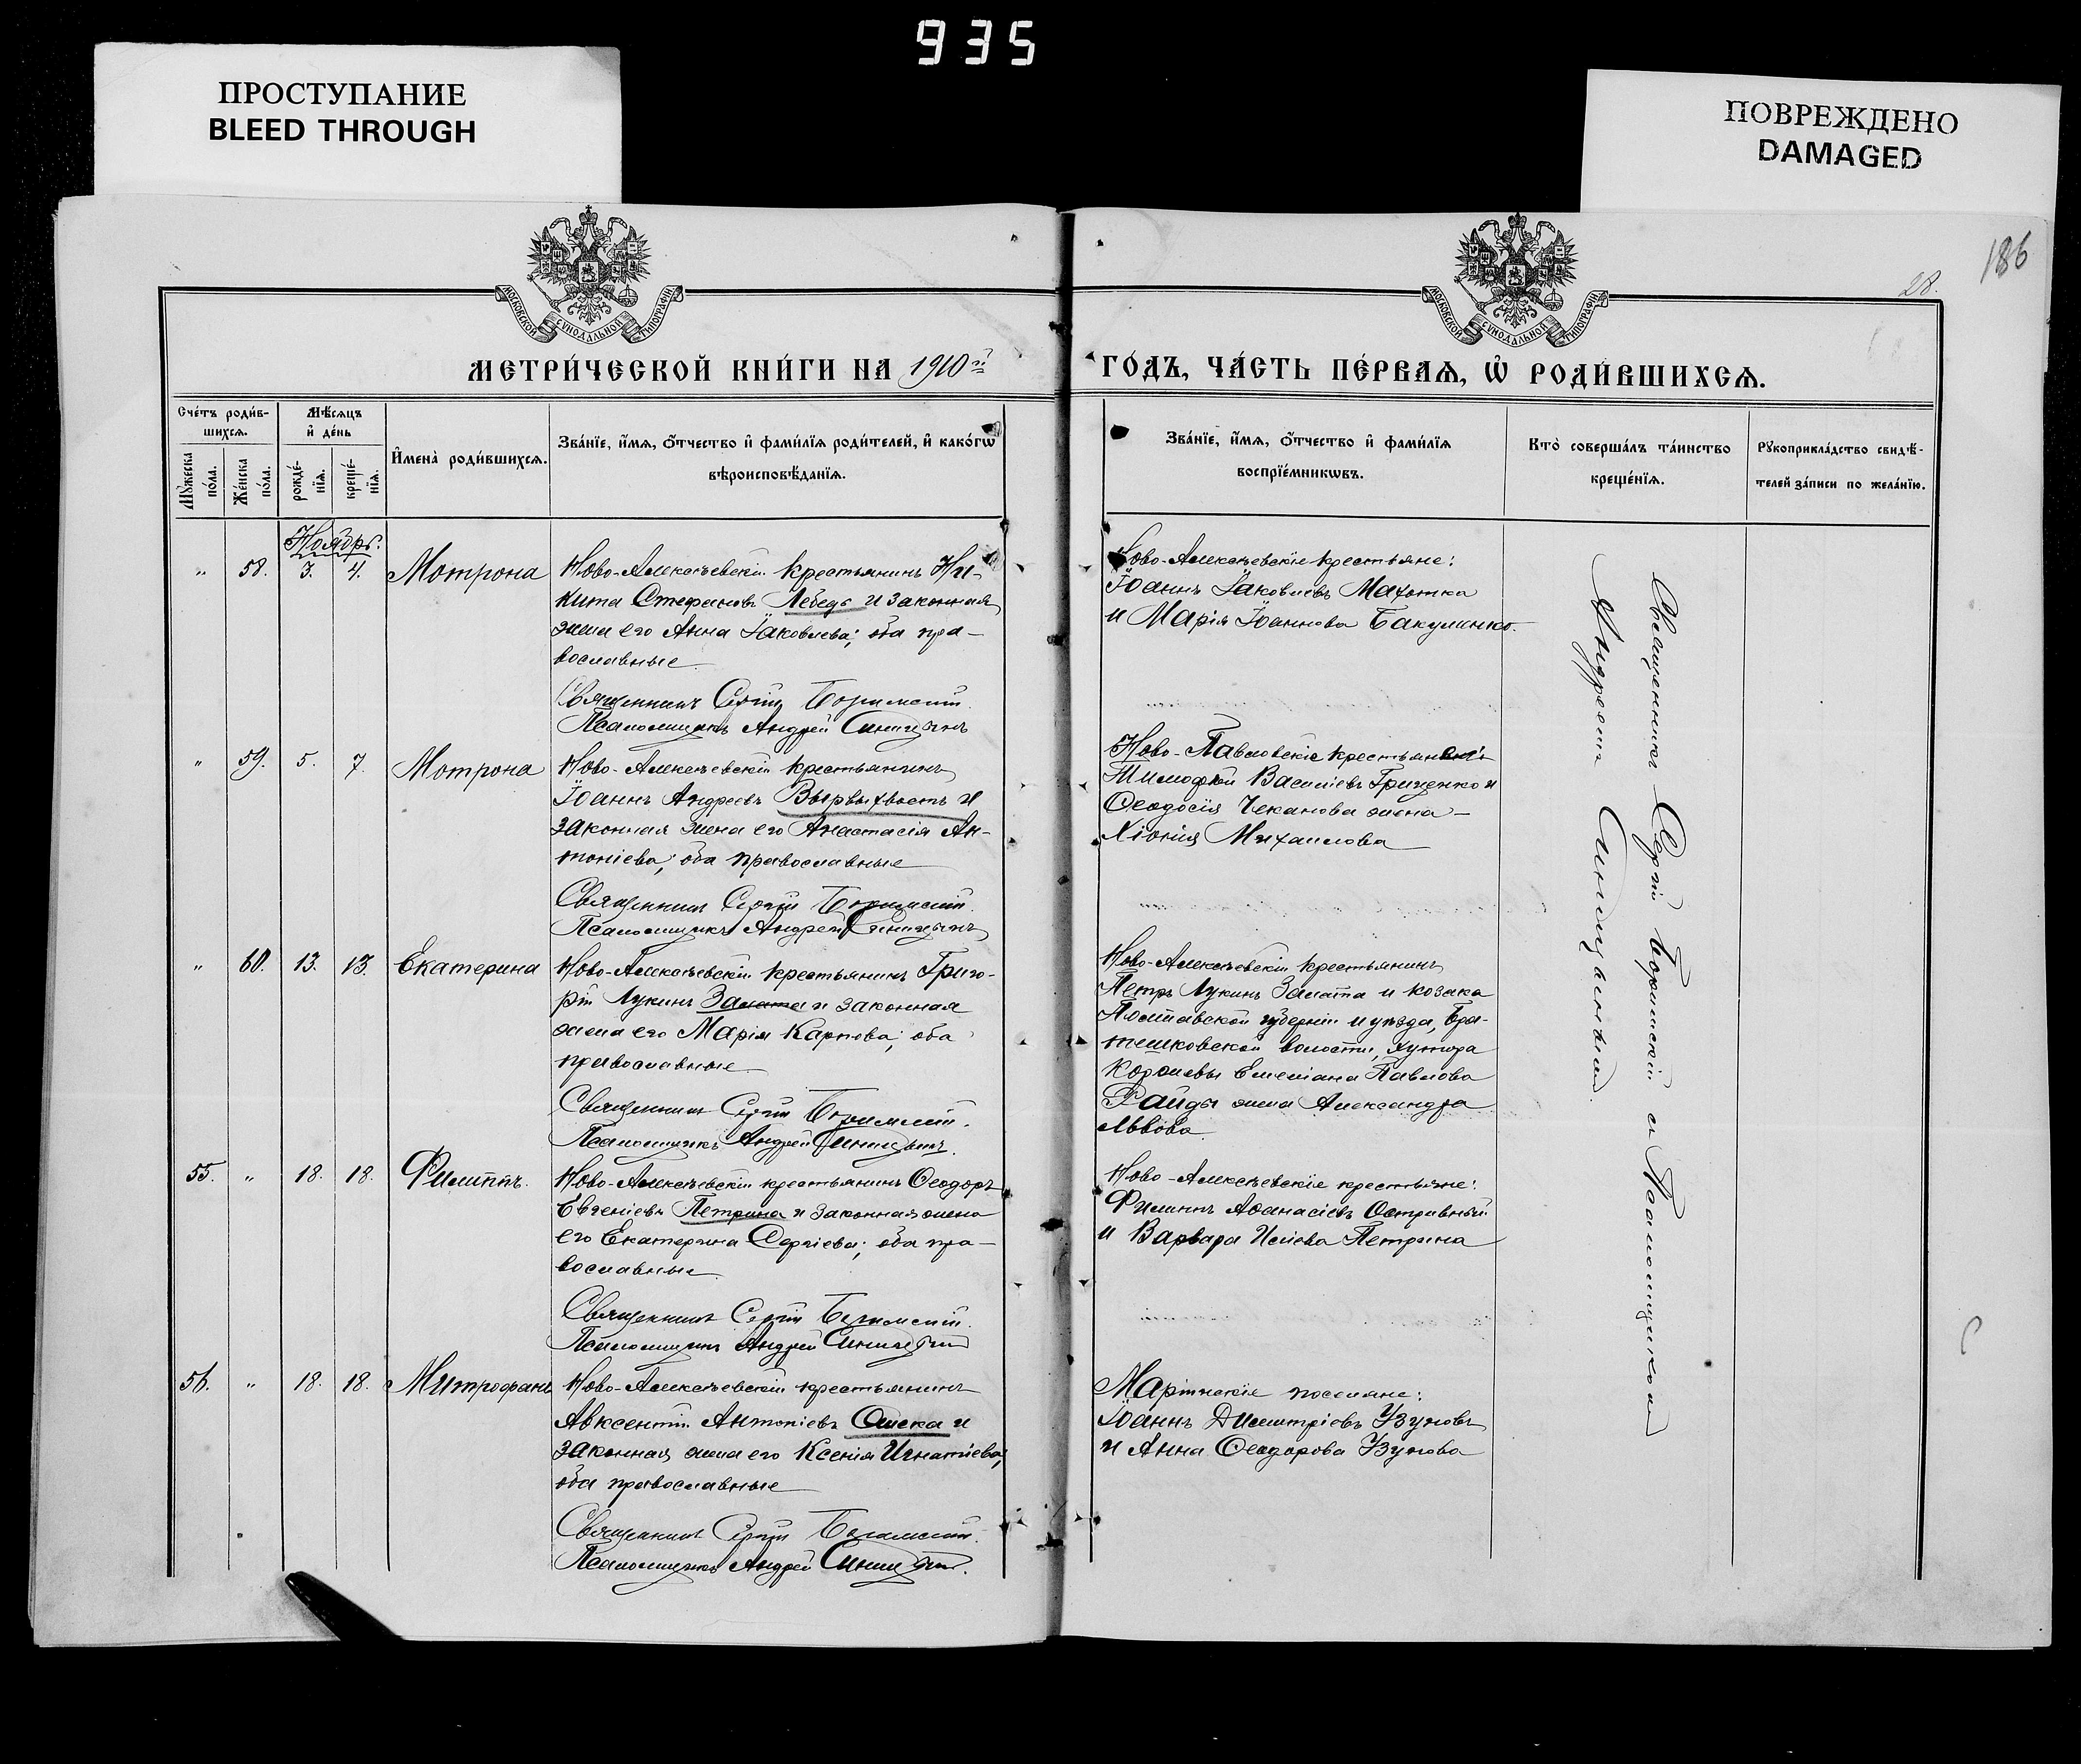 935
ПРОСТУПАНИЕ
BLEED THROUGH
ПОВРЕЖДЕНО
DAMAGED
186
28.
МОСКОВСКОЙ СѴНОДАЛЬНОЙ ТИПОГРАФІИ
МОСКОВСКОЙ СѴНОДАЛЬНОЙ ТИПОГРАФІИ
МЕТРИ́ЧЕСКОЙ КНИ́ГИ НА 1910й
ГО́ДЪ, ЧА́СТЬ ПЕ́РВАѦ, Ѡ҆ РОДИ́ВШИХСѦ.
Сче́тъ роди́в-
шихсѧ.
Мѣ́сѧцъ
и҆ де́нь
Мꙋ́жеска
по́ла.
Же́нска
по́ла.
рожде́-
нїѧ.
креще́-
нїѧ.
И҆мена̀ роди́вшихсѧ.
Зва́нїе, и҆́мѧ, ѻ҆́тчество и҆ фами́лїѧ роди́телей, и҆ како́гѡ
вѣроисповѣ́данїѧ.
Зва́нїе, и҆́мѧ, ѻ҆́тчество и҆ фами́лїѧ
воспрїе́мникѡвъ.
Кто̀ соверша́лъ та́инство
креще́нїѧ.
Рꙋкоприкла́дство свидѣ́-
телей за́писи по жела́нїю.
Ноябрь.
" 58. 3. 4. Мотрона
Ново-Алексѣевскій крестьянинъ Ни-
кита Стефановъ Лебедь и законная
жена его Анна Іаковлева; оба пра-
вославные
Священникъ Сергій
Псаломщикъ Андрей Синицынъ
Ново-Алексѣевскіе крестьяне:
Іоаннъ Іаковлевъ Махотка
и Марія Іоаннова Бакуменко.
" 59. 5. 7. Мотрона
Ново-Алексѣевскій крестьянинъ
Іоаннъ Андреевъ Вырвыхвостъ и
законная жена его Анастасія Ан-
тоніева; оба православные
Священникъ Сергій
Псаломщикъ Андрей Синицынъ
Ново-Павловскіе
Тимофей Василіевъ Гриценко и
Ѳеодосія Чеканова жена
Хіонія Михаилова
" 60. 13. 13. Екатерина
Ново-Алексѣевскій крестьянинъ Григо-
рій Лукинъ Залата и законная
жена его Марія Карпова; оба
православные
Священникъ Сергій
Псаломщикъ Андрей Синицынъ.
Ново-Алексѣевскій крестьянинъ
Петръ Лукинъ Залата и козака
Полтавской губерніи и уѣзда, Бра-
тешковской волости, хутора
Емеліана Павлова
Райды жена Александра
Львова.
55. " 18. 18. Филиппъ.
Ново-Алексѣевскій крестьянинъ Ѳеодоръ
Евгеніевъ Петрина и законная жена
его Екатерина Сергіева; оба пра-
вославные
Священникъ Сергій
Псаломщикъ Андрей Синицынъ
Ново-Алексѣевскіе крестьяне:
Филиппъ Аѳанасіевъ Остривный
и Варвара Петрина
56. " 18. 18. Митрофанъ
Ново-Алексѣевскій крестьянинъ
Авксентій Антоніевъ Ошека и
законная жена его Ксенія Игнатіева;
оба православные
Священникъ Сергій
Псаломщикъ Андрей Синицынъ.
Маріинскіе поселяне:
Іоаннъ Димитріевъ Узуновъ
и Анна Ѳеодорова Узунова
Священникъ Сергій и Псаломщикомъ
Андреемъ Синицынымъ.